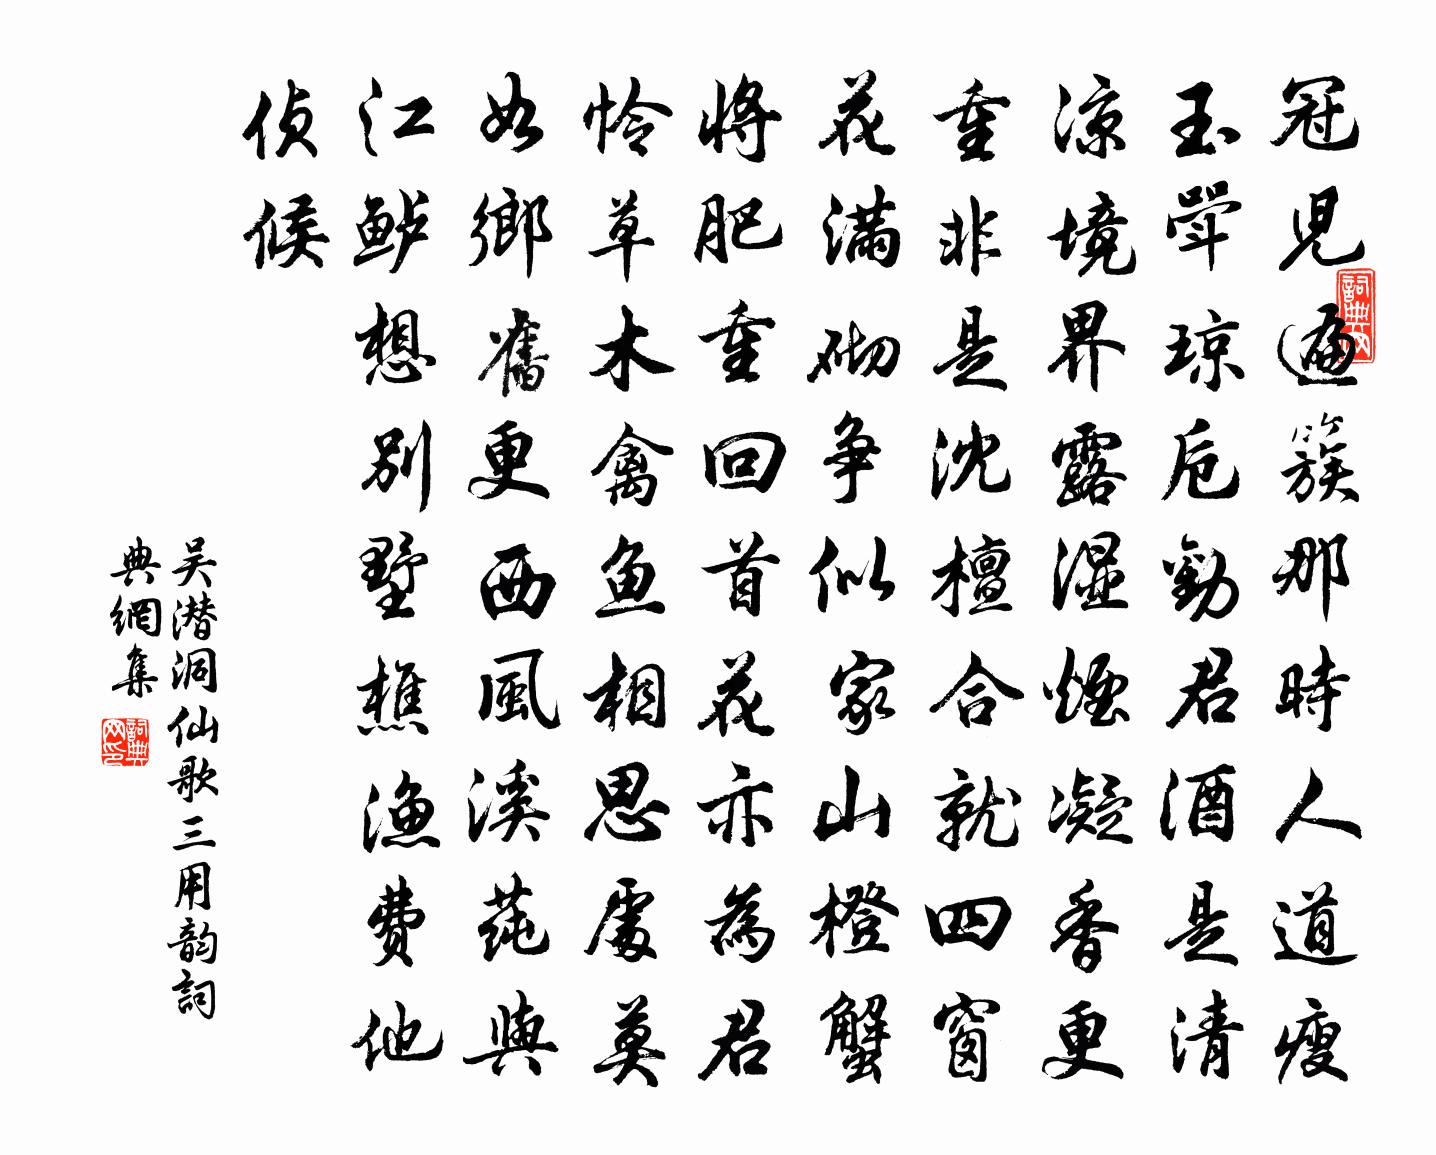 冠兒遍簇那時人道瘦
玉斝琼卮勸君酒是清
凉境界露湿煙凝香更
重非是沈檀合就四窗
花滿砌爭似家山橙蟹
將肥重回首花亦為君
怜草木禽鱼相思處莫
如鄉舊更西風溪莼與
江鲈想别墅樵渔費他
偵候
吴潜洞仙歌三用韵詞
典網集
詞典网
詞典网印